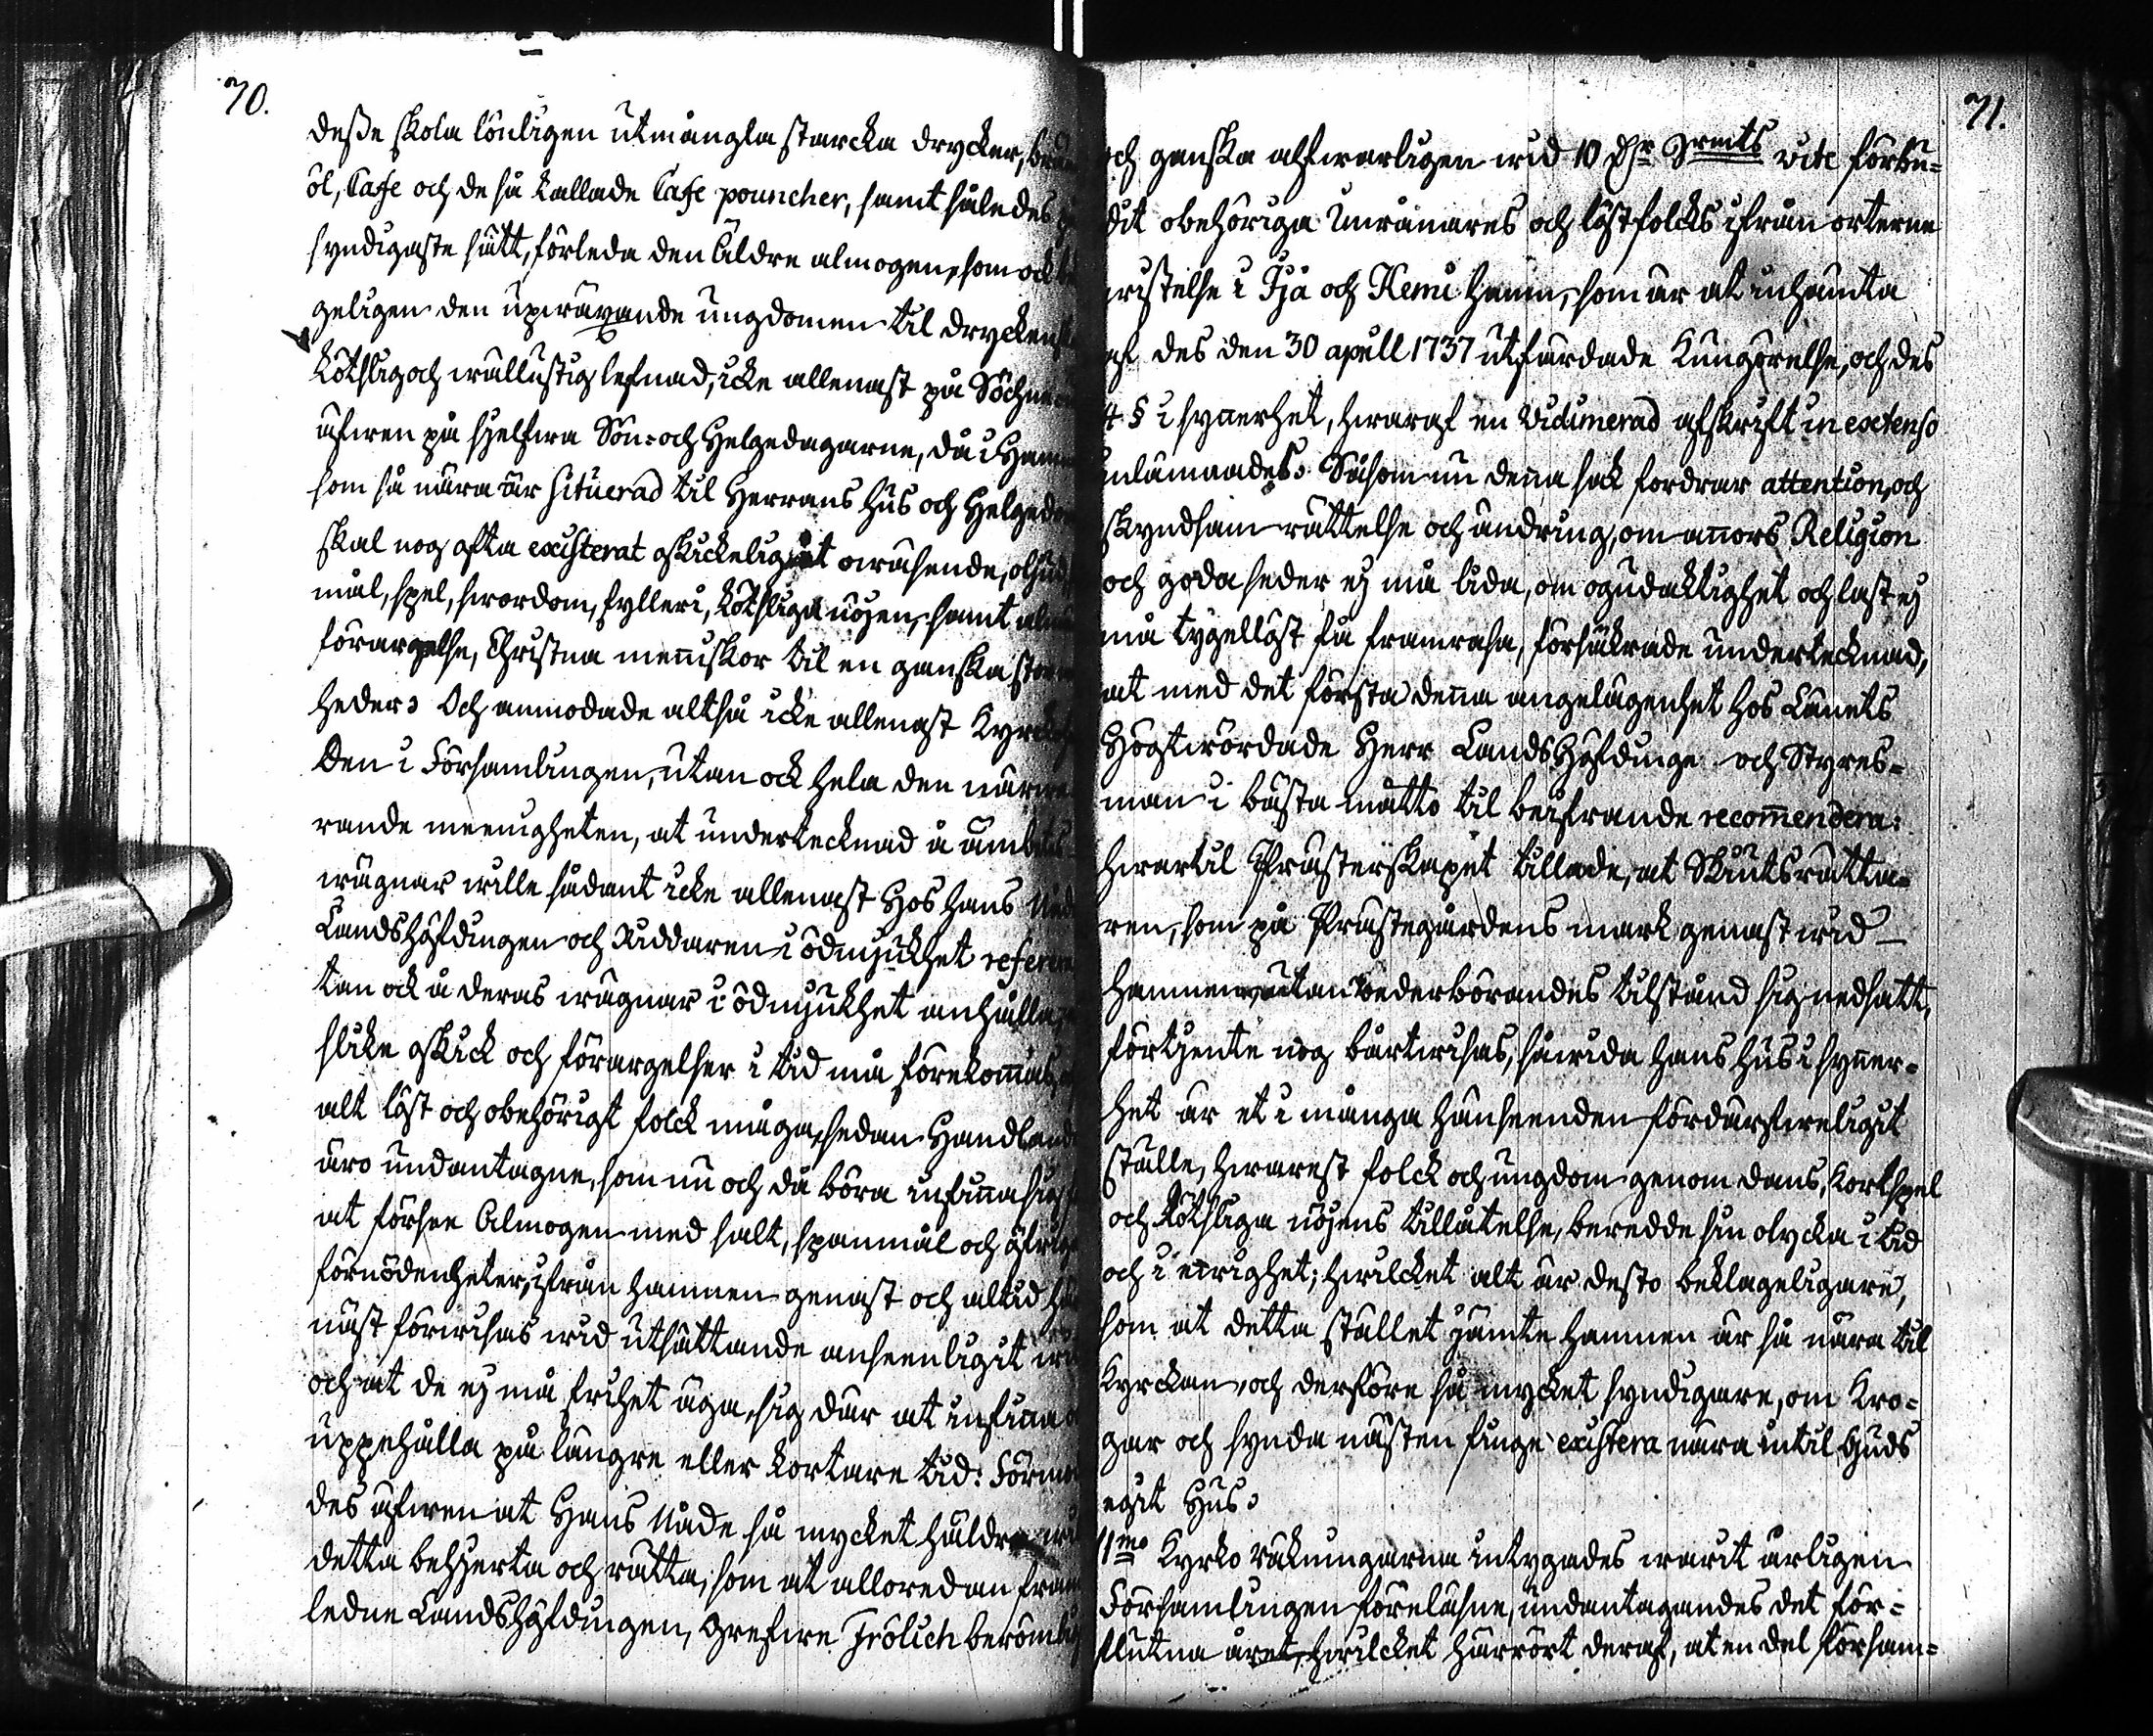 70.
deße skola lönligen utmångla starcka drycker,
öl, Cafe och de så kallade Cafe pouncher, samt således
syndigaste sätt, förleda den äldre almogen, som ock
geligen den upwäxande ungdomen til dryckenskap
kötslig och wällustig lefnad, icke allenast på Söchne
äfwen på sielfwa Sön- och Helgedagarne, då i Hamn
som så nära är situerad til Herrans hus och Helgedom
skal nog ofta existerat oskickeligit owäsende,
mål, spel, swordom, fylleri, kötsliga nöjen, samt
förargelse, Christna menniskor til en ganska stor
heder. Och anmodade altså icke allenast Kyrckoher
den i Församlingen, utan ock hela den närwa
rande menigheten, at undertecknad å ämbets
wägnar wille sådant icke allenast hos hans Nåd
Landshöfdingen och Riddaren i ödmjukhet referera
tan ock å deras wägnar i ödmjukhet anhålla,
slike oskick och förargelser i tid må förekommas,
alt löst och obehörigt folck måga, sedan Handlande
äro undantagne, som nu och då böra infinna sig
at förse Almogen med salt, spanmål och öfrige
förnödenheter, ifrån hamnen genast och altid
näst förwisas wid utsättande anseenligit wite
och at de ej må frihet äga, sig där at infinna
uppehålla på längre eller kortare tid: Förmo
des äfwen at Hans Nåde så mycket häldre
detta behjerta och rätta, som at alloredan fram
ledne Landshöfdingen, Grefwe Frölich berömlig
71.
och ganska alfwarligen wid 10 Dlr Srmts vite förbu-
dit obehöriga Inwånares och löst folcks ifrån orterne
wistelse i Ijå och Kemi hamn, som är at inhämta
af des den 30 apill 1737 utfärdade Kungörelse, och des
4 § i synnerhet, hwaraf en Vidimerad afskrift in extenso
inlämnades. Såsom nu denna sak fordrar attention, och
skyndsam rättelse och ändring, om annors Religion
och goda seder ej må lida, om ogudaktighet och last ej
må tygellöst få framrasa, försäkrade undertecknad,
at med det första denna angelägenhet hos Länets
Högtwördade Herr Landshöfdinge och Styres-
man i bästa måtto til beifrande recommendera:
hwartil Prästerskapet tillade, at Skiutsrätta-
ren, som på Prästegårdens mark genast wid
hamnen, utan wederbörandes tilstånd sig nedsatt,
förtjente nog bårtwisas, såwida hans hus i synner-
het är et i många hänseenden fördärfweligit
ställe, hwarest folck och ungdom genom dans, Kortspel
och Kötsliga nöjens tillåtelse, beredde sin olycka i tid
och i ewighet; hwilcket alt är desto beklageligare,
som at detta stället jämte hamnen är så nära til
Kyrckan, och derföre så mycket syndigare, om Kro-
gar och synda nästen finge existera nära intil Guds
egit Hus.
11mo Kyrko räkningarna intygades warit årligen
Församlingen föreläsne, undantagandes det för-
flutna året, hwilcket härrört deraf, at en del försam-